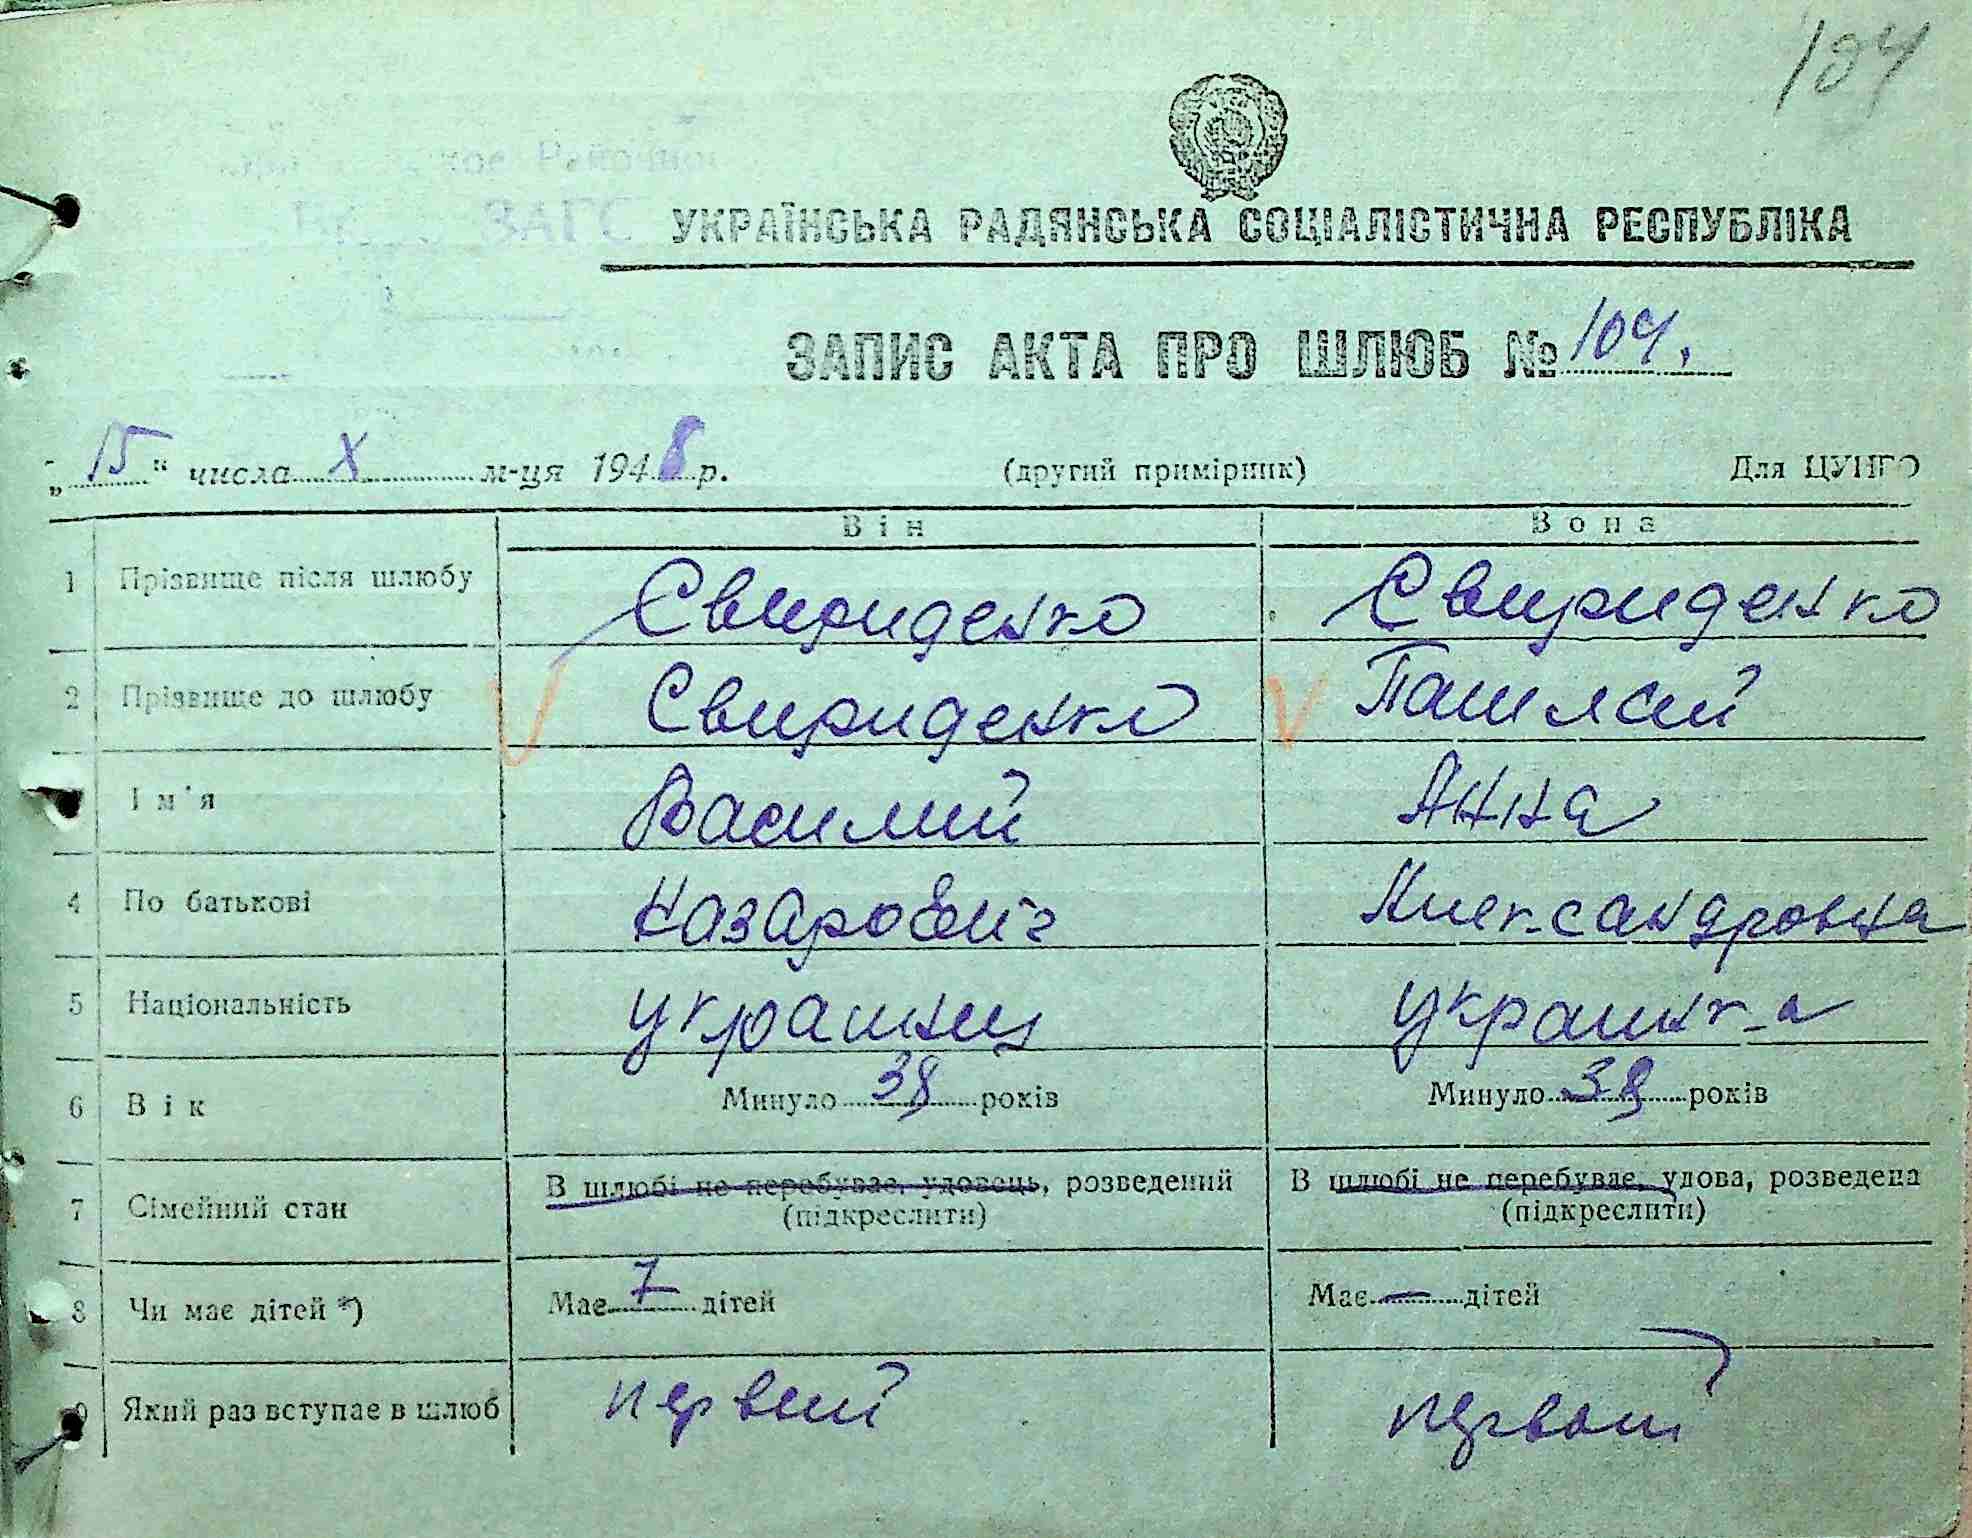 104
ЗАГС
УКРАЇНСЬКА РАДЯНСЬКА СОЦІАЛІСТИЧНА РЕСПУБЛІКА
ЗАПИС АКТА ПРО ШЛЮБ № 104.
„15“ числа X м-ця 1948 р. (другий примірник) Для ЦУНГО
Він Вона
1 Прізвище після шлюбу Свириденко Свириденко
2 Прізвище до шлюбу Свириденко
Ім'я Василий Анна
4 По батькові Назарович Александровна
5 Національність украинец украинка
6 Вік Минуло 38 років Минуло 38 років
7 Сімейний стан В шлюбі не перебуває, удовець, розведений В шлюбі не перебуває, удова, розведена
(підкреслити) (підкреслити)
8 Чи має дітей *) Має 7 дітей Має — дітей
9 Який раз вступає в шлюб первый первый